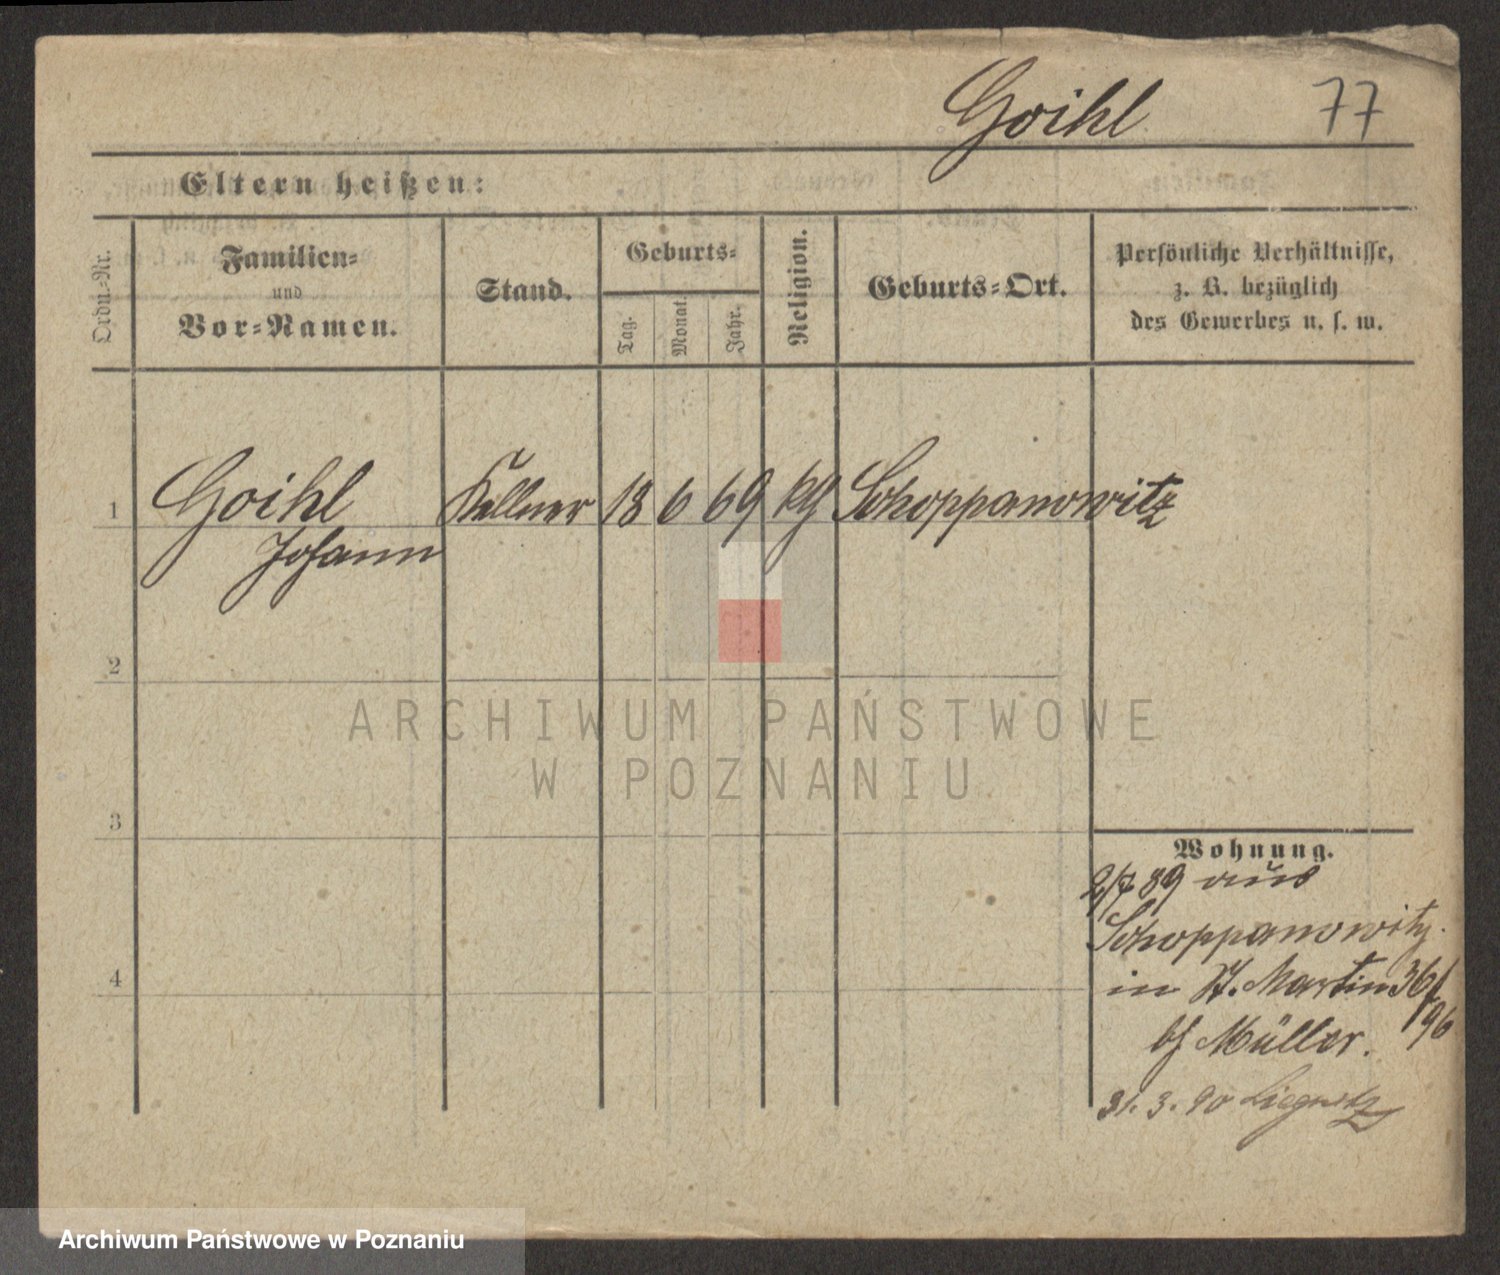 Goihl 77
Eltern heißen:
Ordn.-Nr.
Familien-
und
Vor-Namen.
Stand.
Geburts-
Tag.
Monat.
Jahr.
Religion.
Geburts-Ort.
Persönliche Verhältnisse,
z. B. bezüglich
des Gewerbes u. s. w.
1 Goihl Kellner 18 6 69 kg Schoppanowitz
Johann
2
3
4
ARCHIWUM PAŃSTWOWE
W POZNANIU
Wohnung.
2/7 89 aus
Schoppanowitz.
in St. Martin 36/
96
bei Müller.
31. 3. 90 Liegnitz
Archiwum Państwowe w Poznaniu